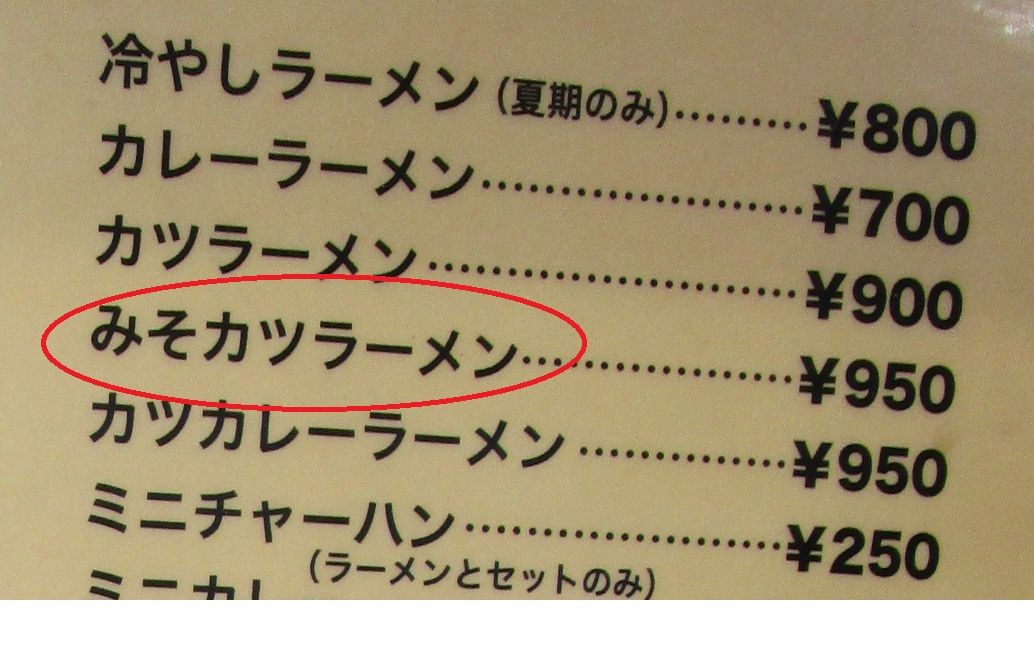 冷やしラーメン(夏期のみ)………¥800
カレーラーメン……………¥700
カツラーメン………………¥900
みそカツラーメン…………¥950
カツカレーラーメン………¥950
ミニチャーハン……………¥250
(ラーメンとセットのみ)